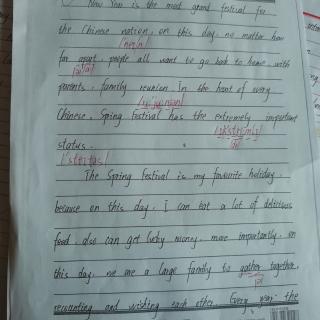 New Year is the most grand festival for
the Chinese nation, on this day, no matter how
far apart people all want to go back to home, with
parents, family reunion. In the heart of every
Chinese, Spring festival has the extremely important
status.
The Spring Festival is my favourite holiday.
because on this day, I can eat a lot of delicious
food, also can get lucky money, more importantly, on
this day, we are a large family to gather together,
recounting and wishing each other. Every year the